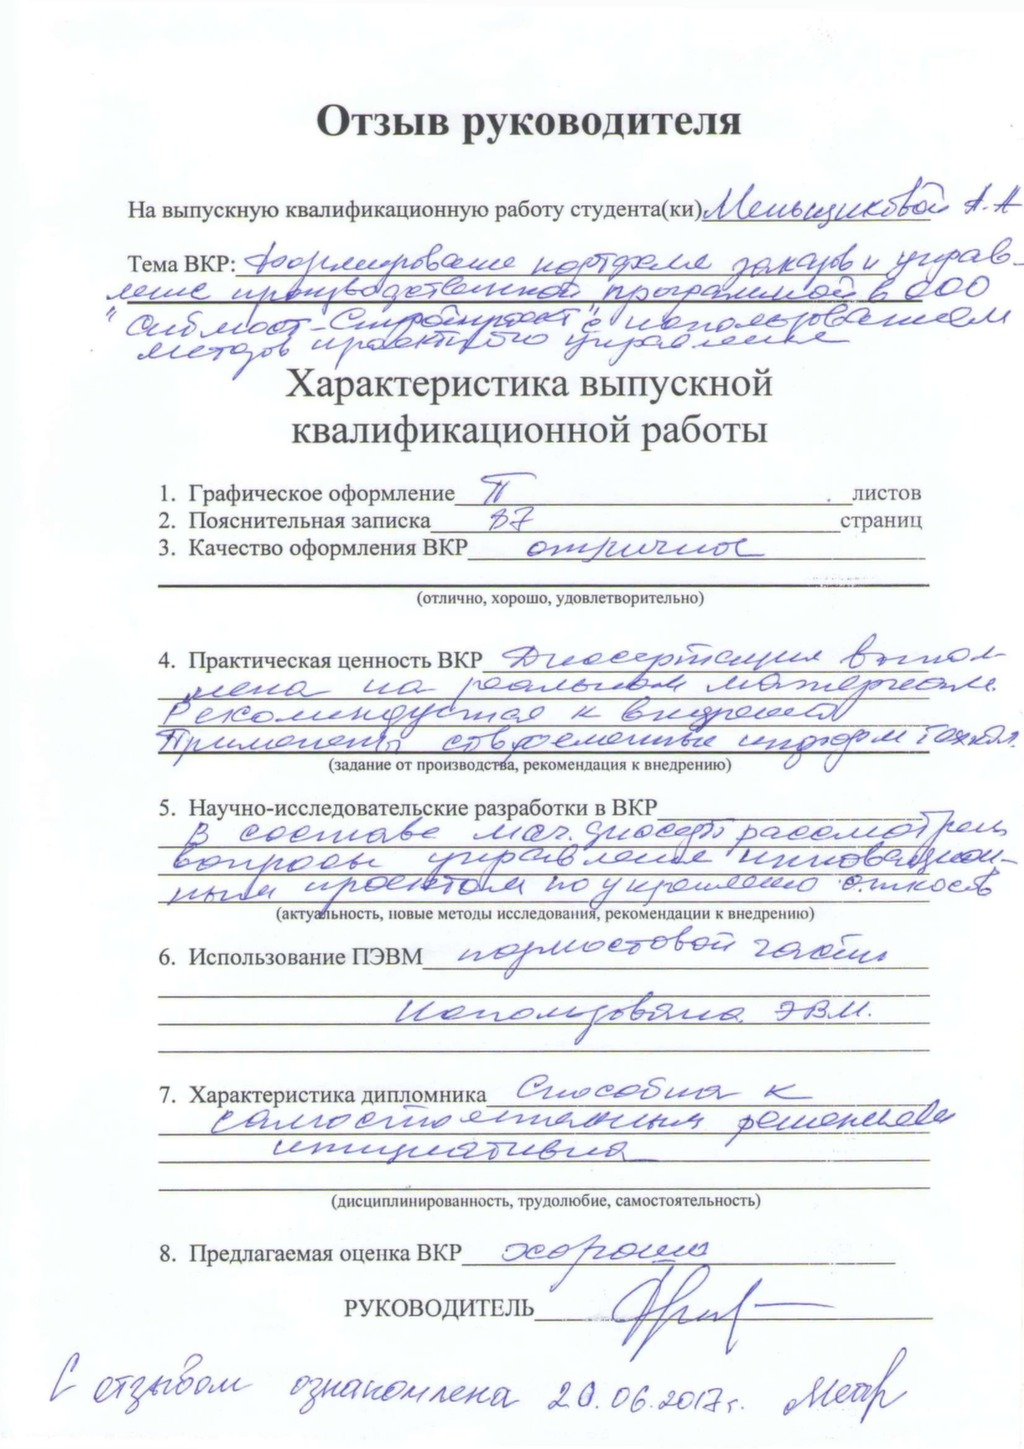 Отзыв руководителя
На выпускную квалификационную работу студента(ки) Меньщиковой А.А
Тема ВКР: Формирование портфеля заказов и управ-
ление производственной программой в ООО
"Сибмост-Стройпроект" с использованием
методов проектного управления
Характеристика выпускной
квалификационной работы
1. Графическое оформление листов
2. Пояснительная записка 87 страниц
3. Качество оформления ВКР отличное
(отлично, хорошо, удовлетворительно)
4. Практическая ценность ВКР Диссертация выпол-
нена на реальном материале.
Рекомендуется к внедрению
Применены современные информ технол.
(задание от производства, рекомендация к внедрению)
5. Научно-исследовательские разработки в ВКР
В составе маг. диссерт рассмотрены
вопросы управления инновацион-
ным проектом по укреплению откосов
(актуальность, новые методы исследования, рекомендации к внедрению)
6. Использование ПЭВМ подмостовой части
Использована ЭВМ.
7. Характеристика дипломника Способна к
самостоятельным решениям
инициативна
(дисциплинированность, трудолюбие, самостоятельность)
8. Предлагаемая оценка ВКР хорошо
РУКОВОДИТЕЛЬ
С отзывом ознакомлена 20.06.2017г.